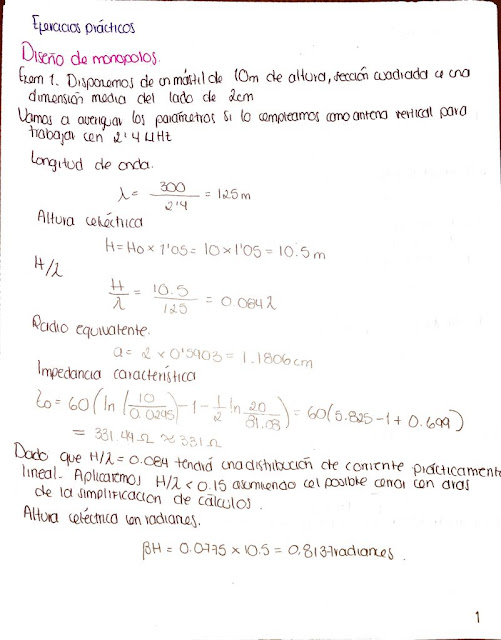 Ejercicios prácticos
Diseño de monopolos.
Exem 1. Disponemos de un mástil de 10m de altura, sección cuadrada de una
dimensión media del lado de 2cm
Vamos a averiguar los parámetros si lo empleamos como antena vertical para
trabajar con 2'4 MHz
Longitud de onda.
λ = 300 / 2'4 = 125 m
Altura eléctrica
H = Ho × 1'05 = 10 × 1'05 = 10.5 m
H/λ
H/λ = 10.5 / 125 = 0.084λ
Radio equivalente.
a = 2 × 0'5903 = 1.1806 cm
Impedancia característica
Zo = 60 (ln (10 / 0.0295) - 1 - 1/2 ln 20 / 81.03) = 60 (5.825 - 1 + 0.699)
= 331.49 Ω ≈ 331 Ω
Dado que H/λ = 0.084 tendrá una distribución de corriente prácticamente
lineal. Aplicaremos H/λ < 0.15 asumiendo el posible error con
de la simplificación de cálculos.
Altura eléctrica en radianes.
βH = 0.0775 × 10.5 = 0.8137 radianes.
1